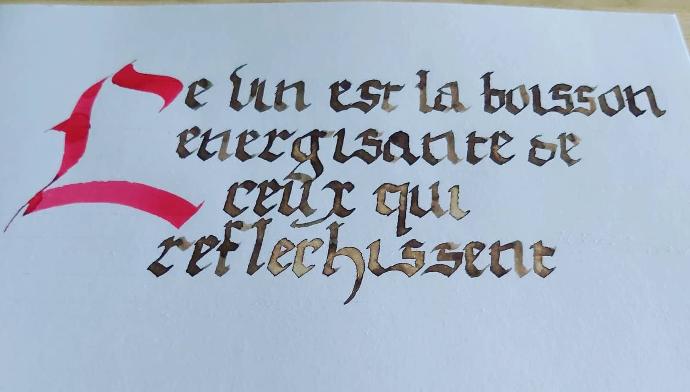 Le vin est la boisson
energisante de
ceux qui
reflechissent